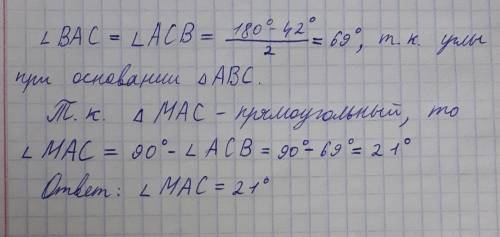 ∠BAC = ∠ACB = (180° - 42°)/2 = 69°, т.к. углы
при основании △ABC.
Т.к. △MAC - прямоугольный, то
∠MAC = 90° - ∠ACB = 90° - 69° = 21°
Ответ: ∠MAC = 21°